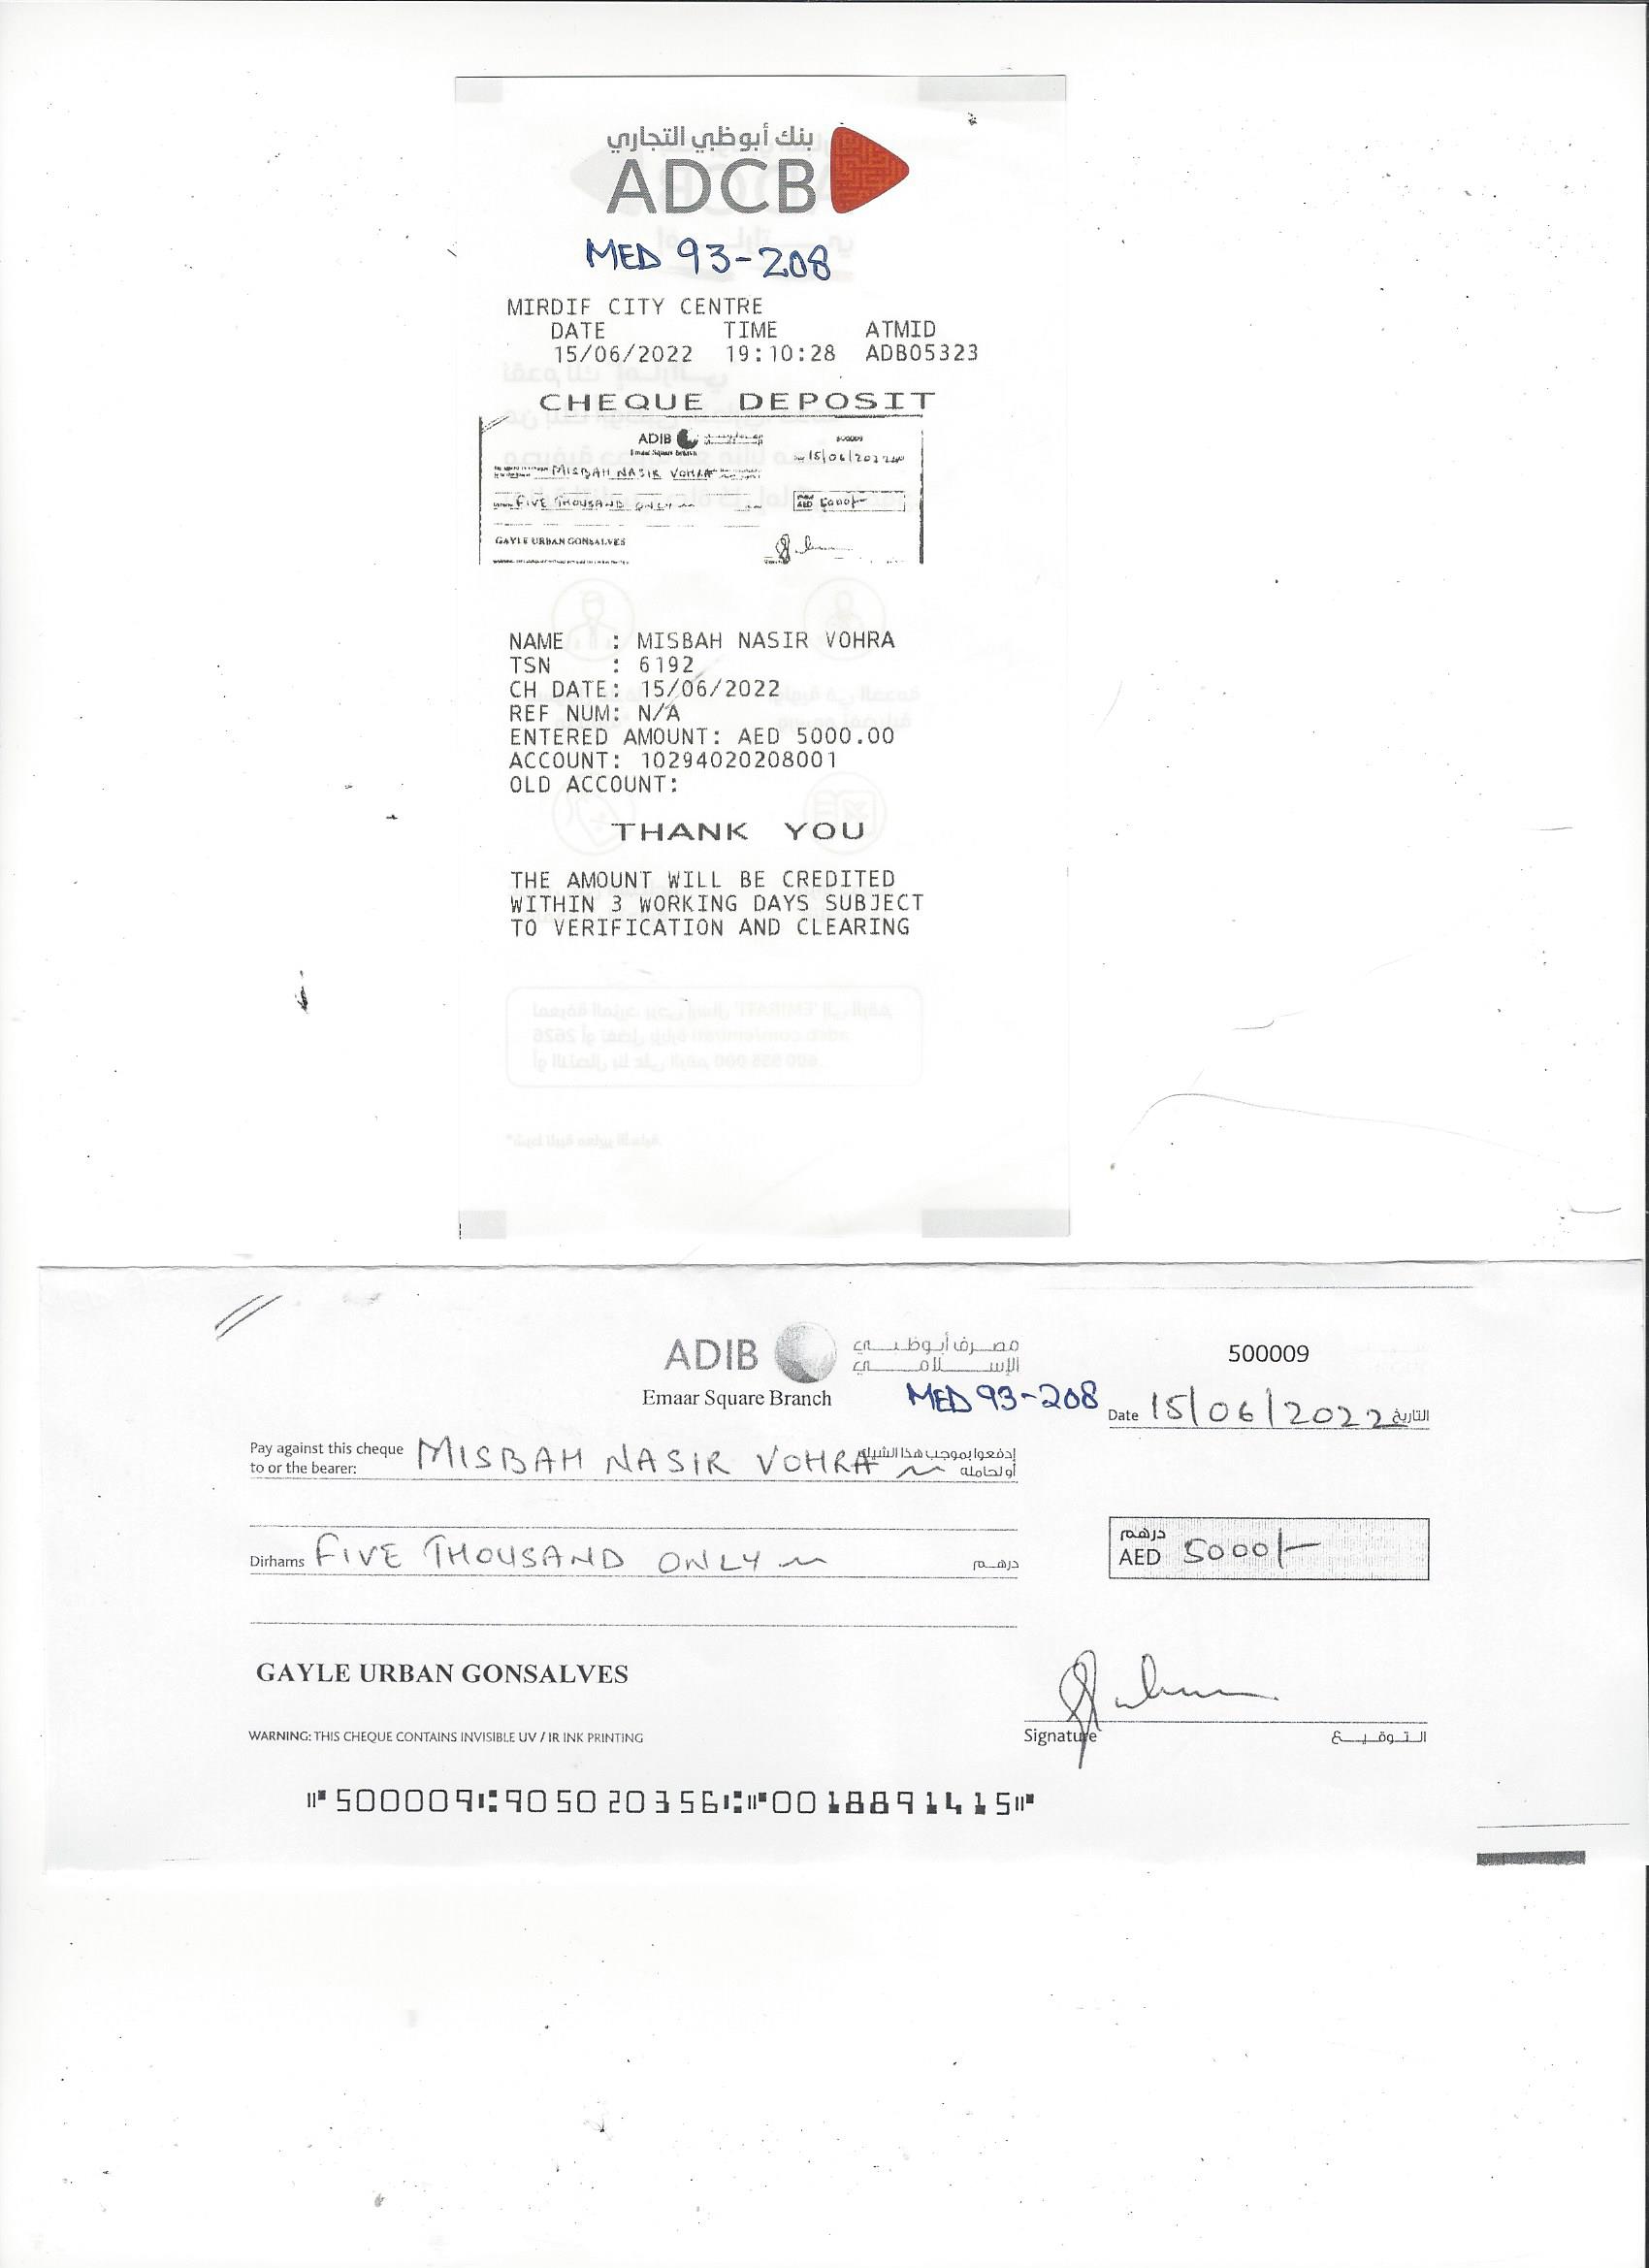 بنك أبوظبي التجاري
ADCB
MED 93-208
MIRDIF CITY CENTRE
DATE TIME ATMID
15/06/2022 19:10:28 ADB05323
CHEQUE DEPOSIT
ADIB
Emaar Square Branch
500009
15/06/2022
MISBAH NASIR VOHRA
FIVE THOUSAND ONLY
AED 5000/-
GAYLE URBAN GONSALVES
NAME : MISBAH NASIR VOHRA
TSN : 6192
CH DATE: 15/06/2022
REF NUM: N/A
ENTERED AMOUNT: AED 5000.00
ACCOUNT: 10294020208001
OLD ACCOUNT:
THANK YOU
THE AMOUNT WILL BE CREDITED
WITHIN 3 WORKING DAYS SUBJECT
TO VERIFICATION AND CLEARING
ADIB مصرف أبوظبي
الإسلامي
500009
Emaar Square Branch
MED 93-208
Date 15/06/2022 التاريخ
Pay against this cheque MISBAH NASIR VOHRA إدفعوا بموجب هذا الشيك
to or the bearer: أو لحامله
Dirhams FIVE THOUSAND ONLY درهم
درهم
AED 5000/-
GAYLE URBAN GONSALVES
WARNING: THIS CHEQUE CONTAINS INVISIBLE UV / IR INK PRINTING
Signature التوقيع
⑈500009⑆905020356⑆⑈0018891415⑈